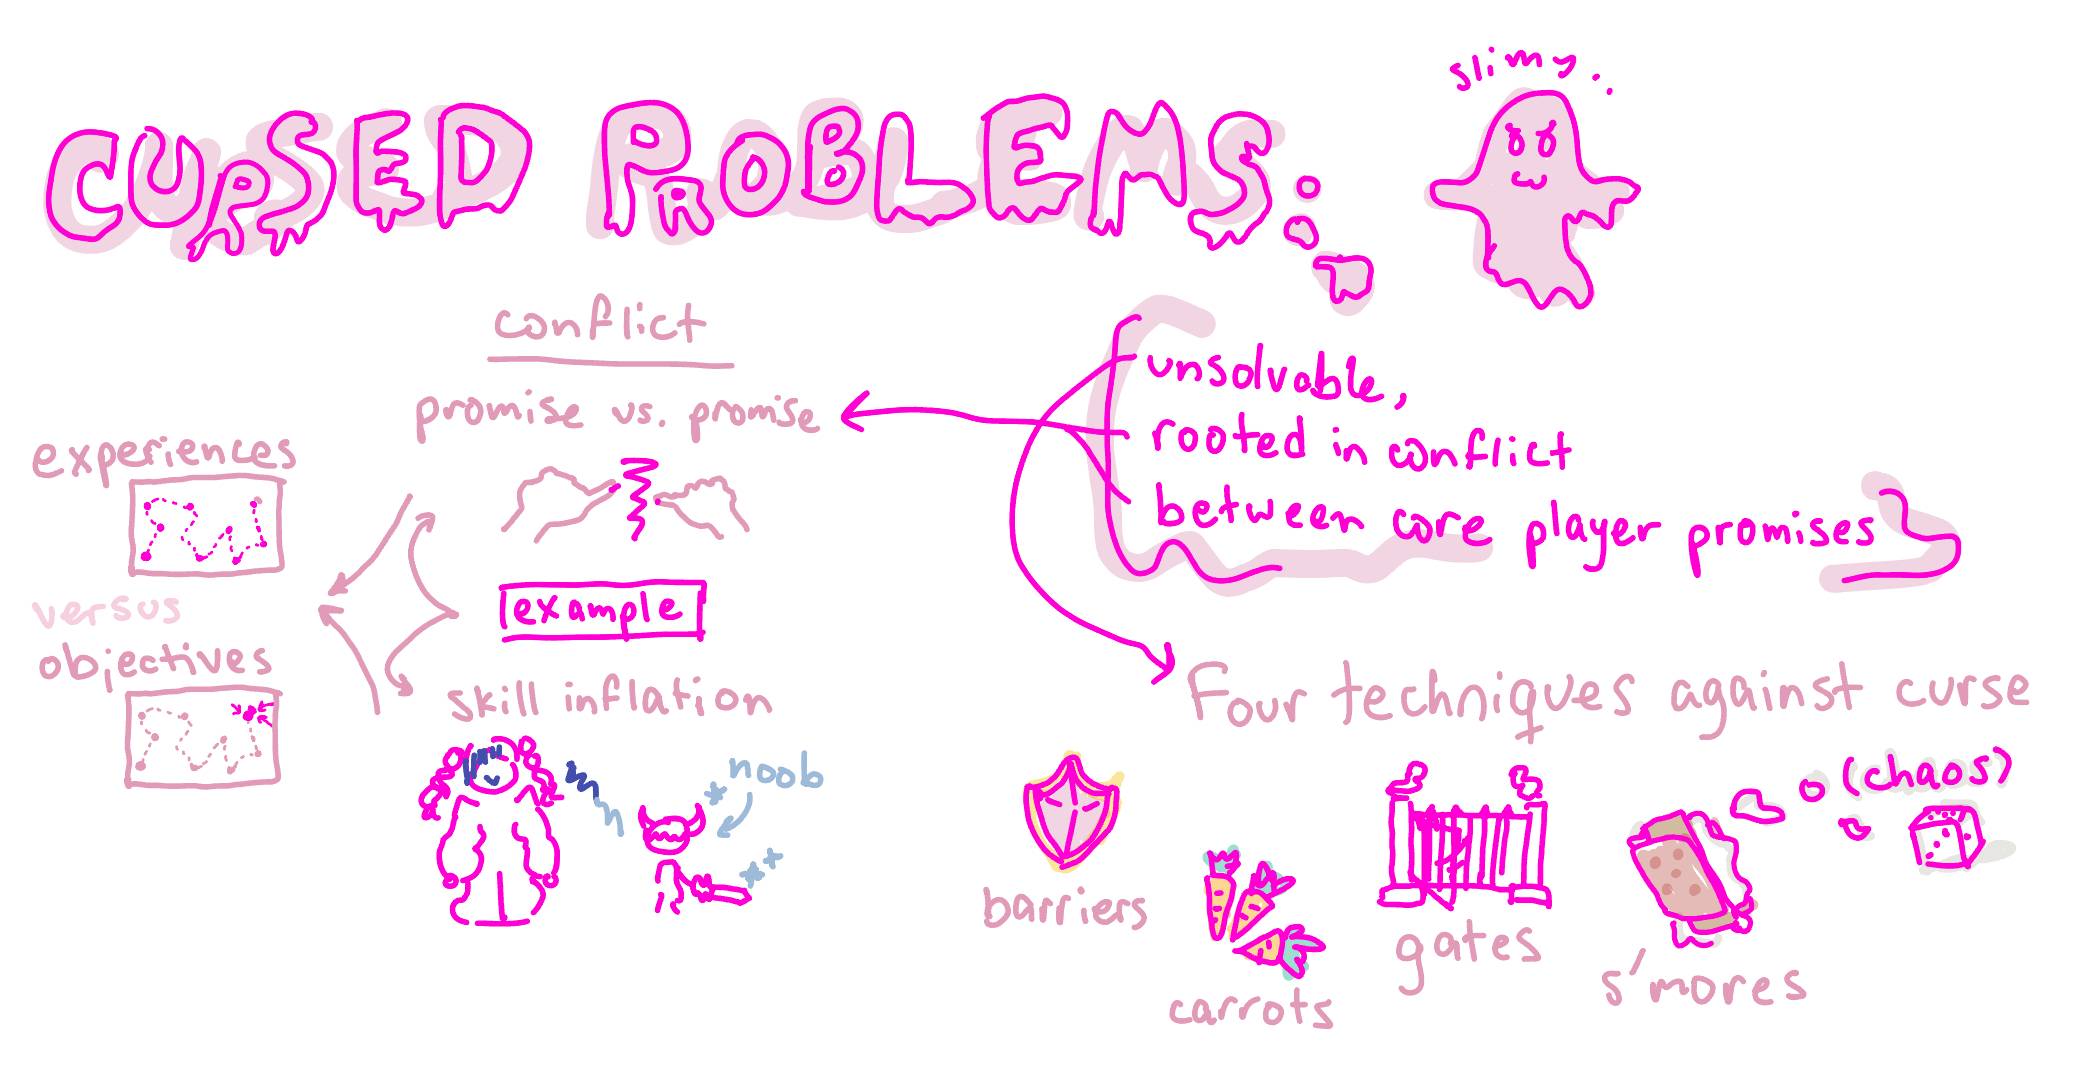 CURSED PROBLEMS.
slimy.
conflict
promise vs. promise
unsolvable,
rooted in conflict
between core player promises
experiences
versus
objectives
example
skill inflation
noob
Four techniques against curse
barriers
carrots
gates
s'mores
(chaos)